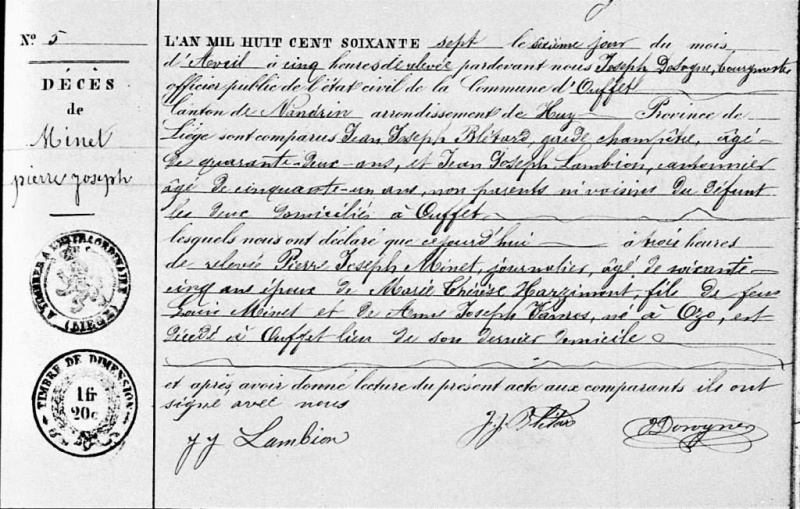 Nº 5
DÉCÈS
de
Minet
pierre joseph
A TIMBRER A L'EXTRAORDINAIRE
(LIEGE)
TIMBRE DE DIMENSION
1f
20c
L'AN MIL HUIT CENT SOIXANTE sept le sixième jour du mois
d'Avril à cinq heures de relevée pardevant nous Joseph bourgmestre
officier public de l'état civil de la Commune d'Ouffet
Canton de Nandrin arrondissement de Huy Province de
Liège sont comparus Jean Joseph Blétard, garde champêtre, âgé
de quarante-deux-ans, et Jean Joseph Lambion, cantonnier
âgé de cinquante-un ans, non parents ni voisins du défunt
les deux domiciliés à Ouffet
lesquels nous ont déclaré que cejourd'hui à trois heures
de relevée Pierre Joseph Minet, journalier, âgé de soixante-
cinq ans époux de Marie Thérèse Harzimont, fils de feu
Louis Minet et de Anne Joseph né à Ozo, est
décédé à Ouffet lieu de son dernier domicile
et après avoir donné lecture du présent acte aux comparants ils ont
signé avec nous
J J Lambion
J.J.